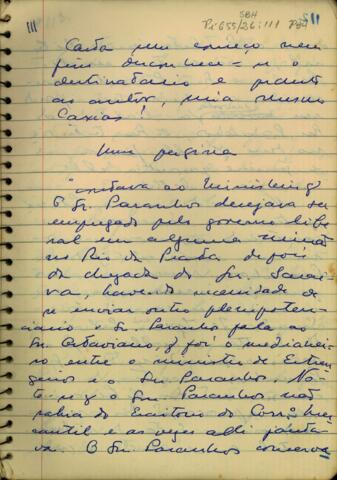 III
SBH
Pi 655/26:111 P34
Carta sem começo nem
fim desconhece-se o
destinatario e quanto
ao autor, seria mesmo
Caxias!
Uma pagina
"Constava ao Ministerio q
O Sr. Paranhos desejava ser
empregado pelo governo libe-
ral em alguma missão
no Rio da Prata depois
da chegada do Sr. Sarai-
va, havendo necessidade de
se enviar outro plenipoten-
ciario o Sr. Paranhos fala ao
Sr. Octaviano, q foi o medianei-
ro entre o ministro de Estran-
geiros e o Sr. Paranhos. No-
te-se q o Sr. Paranhos não
sahia do Escritorio do Corr.º Mer-
cantil e as vezes alli janta-
va. O Sr. Paranhos conserva